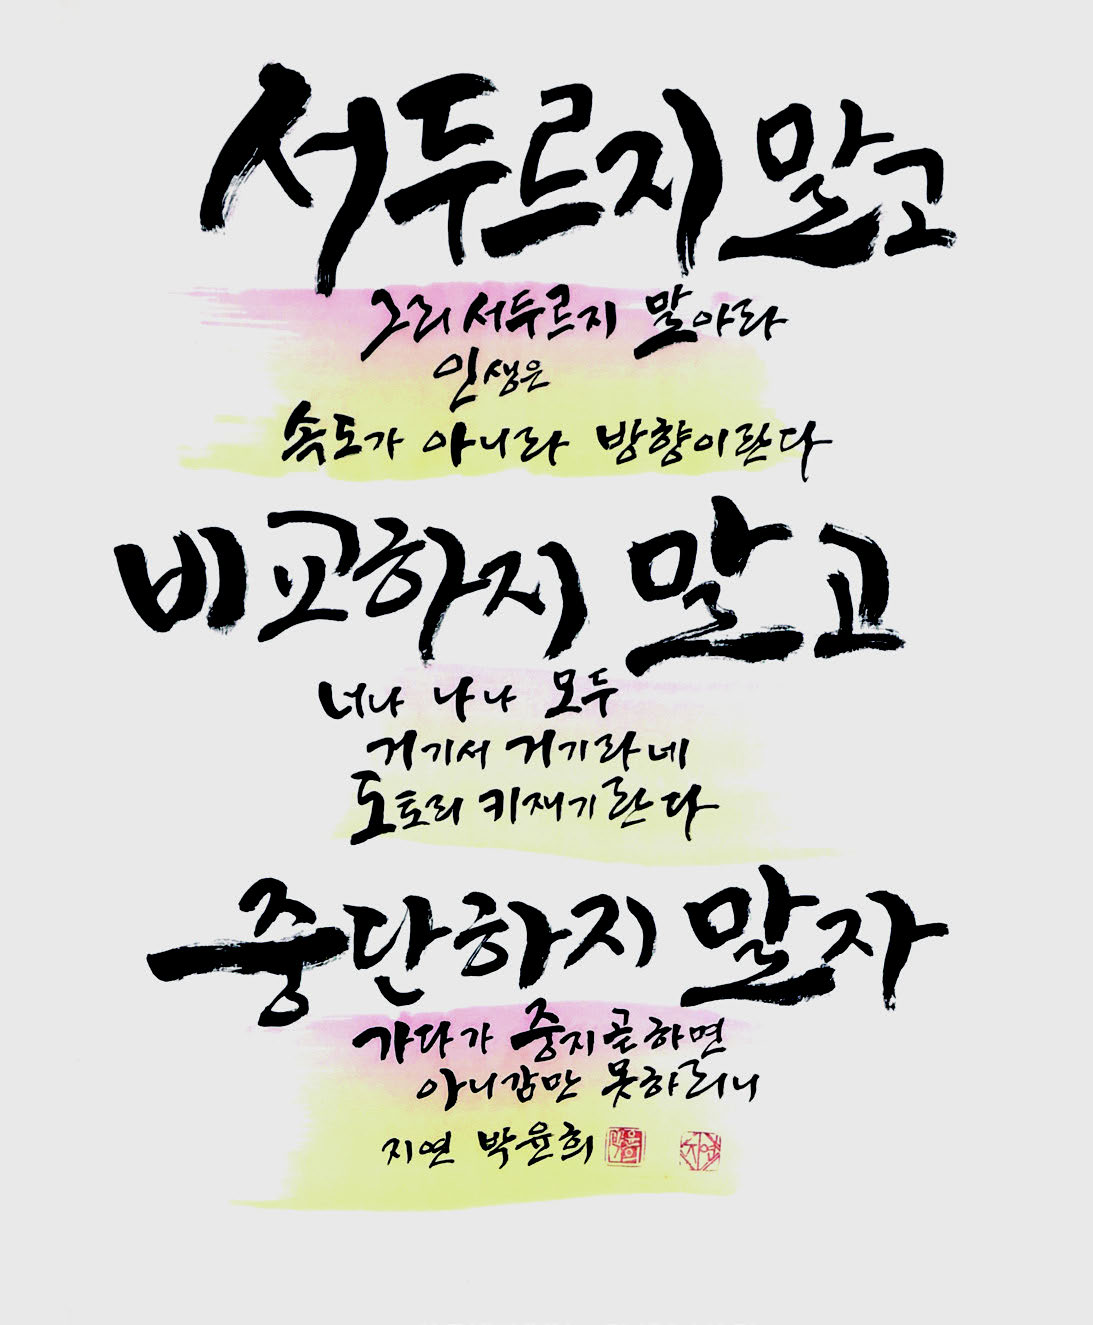 서두르지 말고
그리 서두르지 말아라
인생은
속도가 아니라 방향이란다
비교하지 말고
너나 나나 모두
거기서 거기라네
도토리 키재기란다
중단하지 말자
가다가 중지곧하면
아니감만 못하리니
지연 박윤희
박윤희 지연